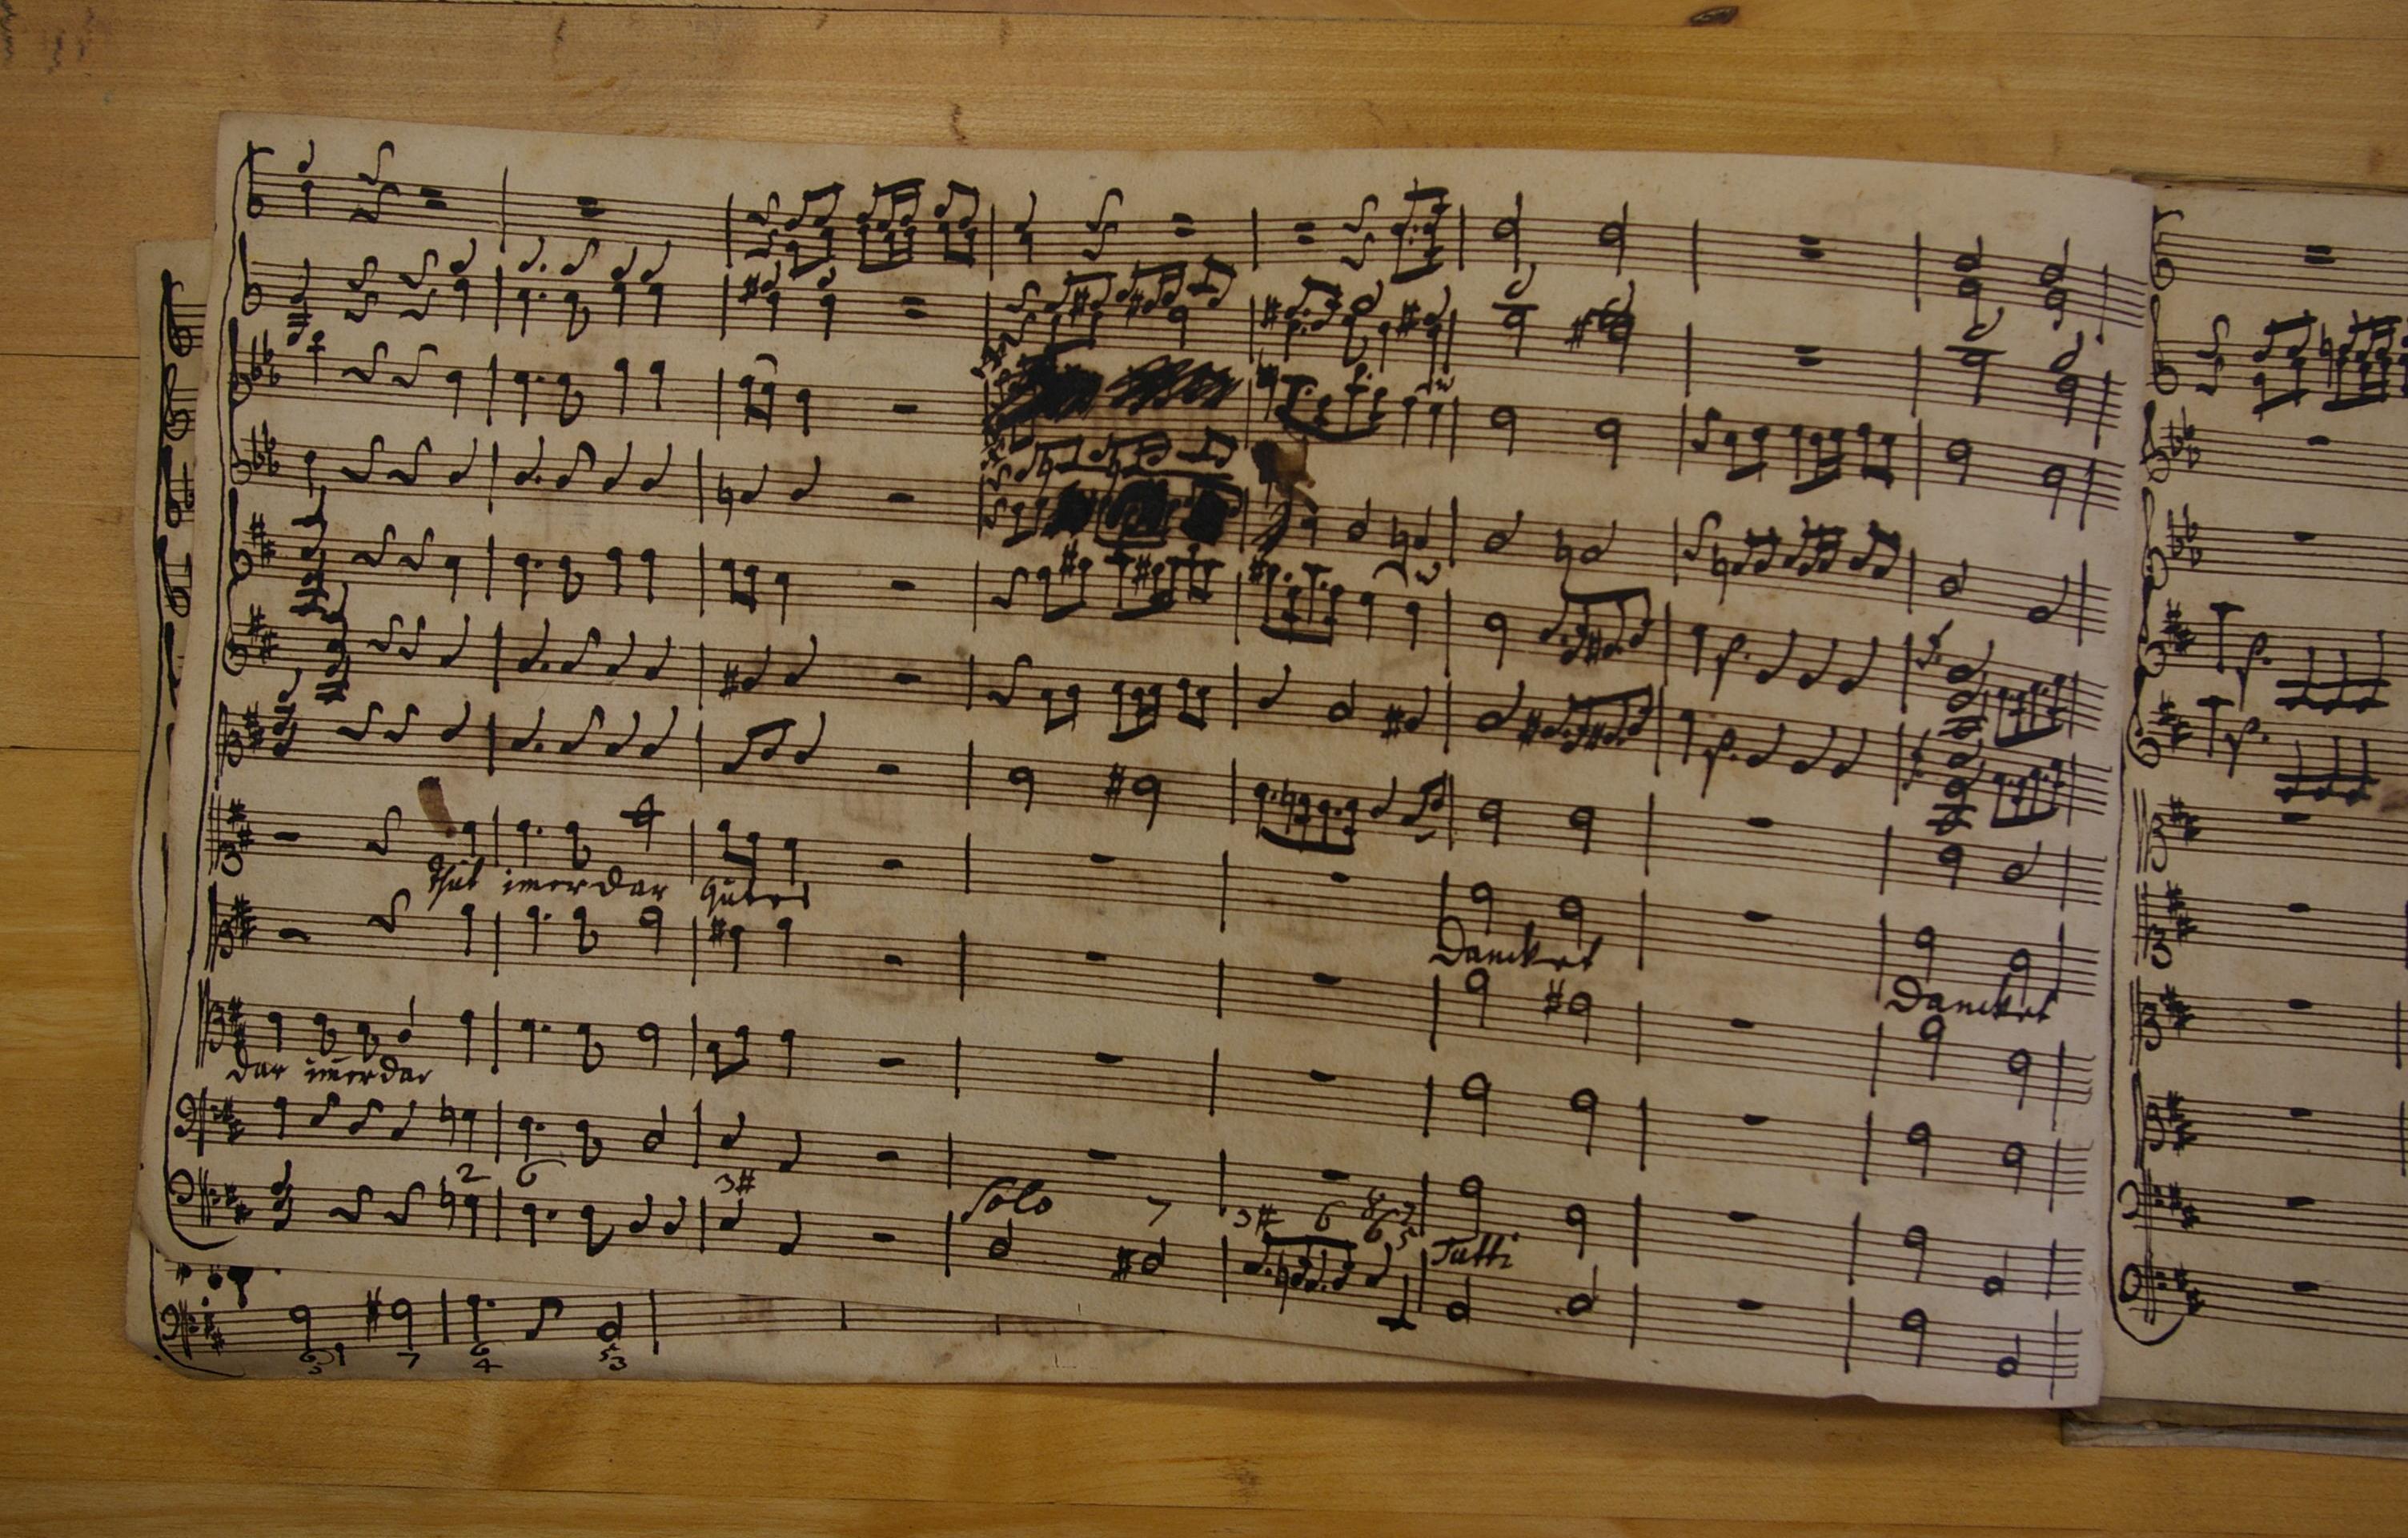 Thut im̄erdar gutes
Dancket
Dancket
dar im̄erdar
2 6 3#
Solo 7 3# 6
Tutti
7 6
4